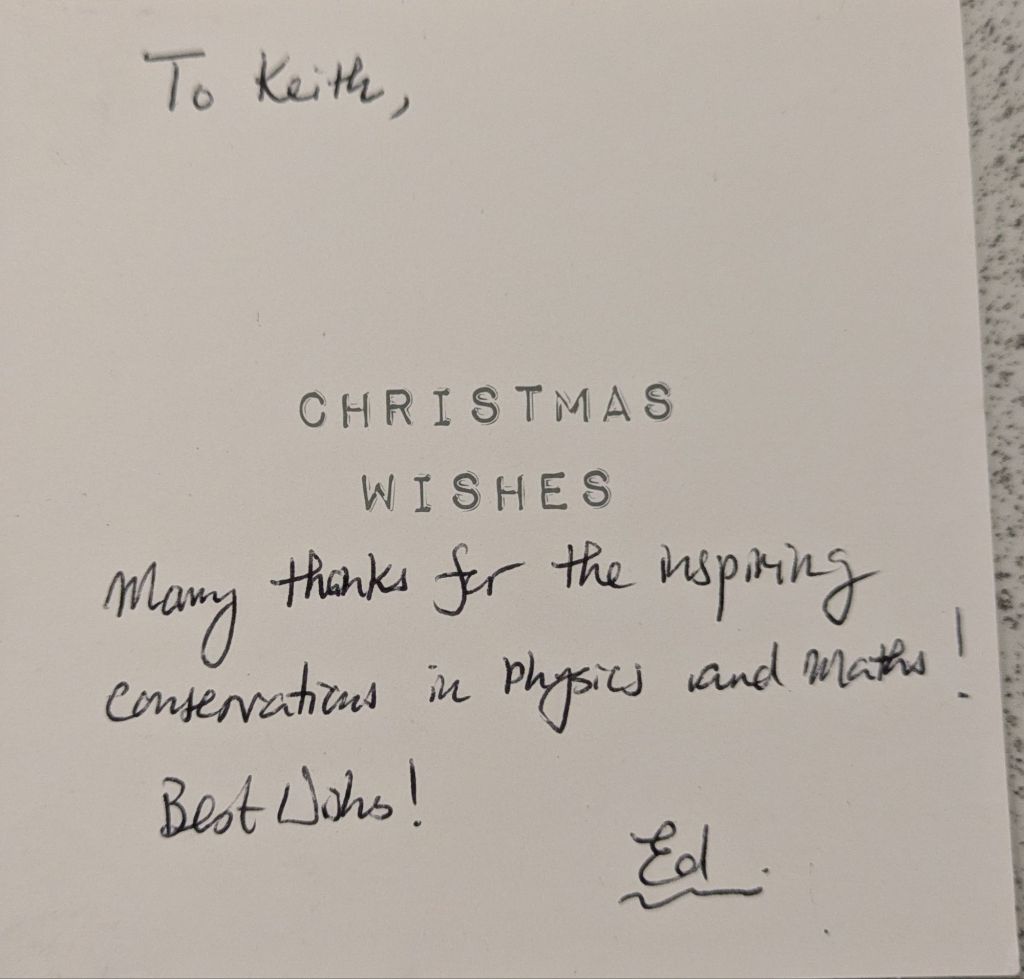 To Keith,
CHRISTMAS
WISHES
Many thanks for the inspiring
conservations in Physics and Maths!
Best Wishs!
Ed.